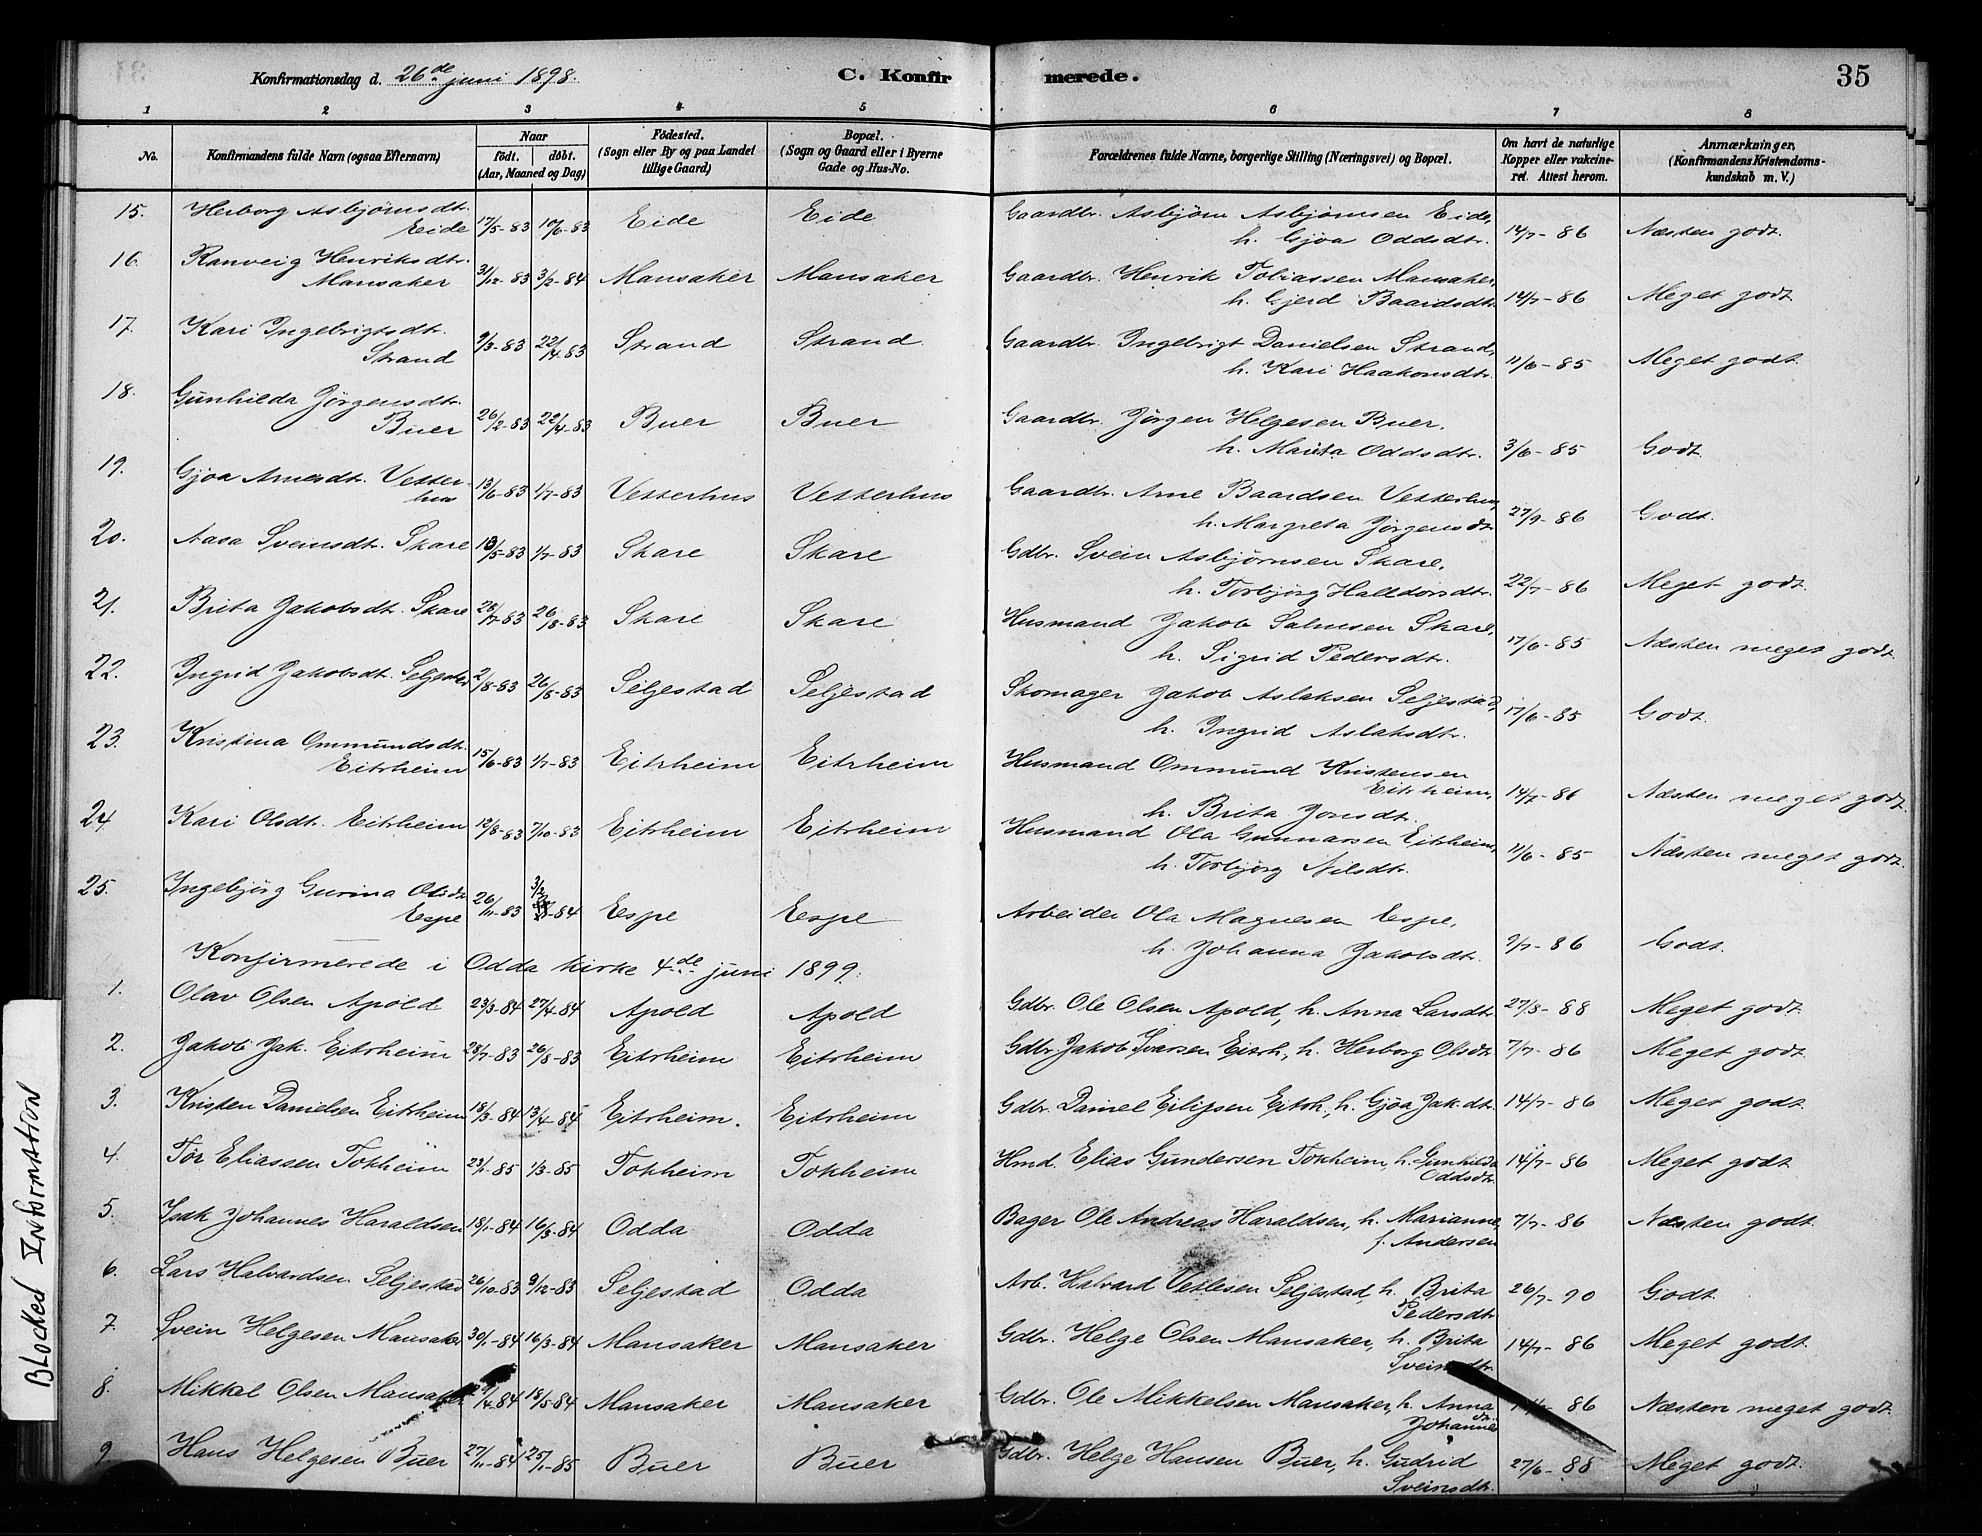 Konfirmationsdag d. 26de juni 1898.
C. Konfirmerede.
35
1 2 3 4 5 6 7 8
No.
Konfirmandens fulde Navn (ogsaa Efternavn)
Naar
født. døbt.
(Aar, Maaned og Dag)
Fødested.
(Sogn eller By og paa Landet
tillige Gaard)
Bopæl.
(Sogn og Gaard eller i Byerne
Gade og Hus-No.
Forældrenes fulde Navne, borgerlige Stilling (Næringsvei) og Bopæl.
Om havt de naturlige
Kopper eller vakcine-
ret. Attest herom.
Anmærkninger.
(Konfirmandens Kristendoms-
kundskab m. V.)
15. Herborg Asbjørnsdt. Gaardbr. Asbjørn Asbjørnsen Eide,
Eide 17/5-83 10/6-83 Eide Eide h. Gjøa Oddsdtr. 14/7-86 Næsten godt.
16. Ranveig Henriksdtr. Gaardbr. Henrik Tobiassen Mansaker,
Mansaker 31/12-83 3/2-84 Mansaker Mansaker h. Gjerd Baardsdtr. 14/7-86 Meget godt.
17. Kari Ingebrigtsdt. Gaardbr. Ingebrigt Danielsen Strand,
Strand 9/3-83 22/4-83 Strand Strand h. Kari Haakonsdtr. 11/6-85 Meget godt.
18. Gunhilda Jørgensdtr. Gaardbr. Jørgen Helgesen Buer,
Buer 26/2-83 22/4-83 Buer Buer h. Marita Oddsdtr. 3/6-85 Godt.
19. Gjøa Arnesdt. Vetter- Gaardbr. Arne Baardsen Vetterhus,
hus 13/6-83 1/7-83 Vetterhus Vetterhus h. Margreta Jørgensdt. 27/9-86 Godt.
20. Aasa Sveinsdt. Skare 13/5-83 1/7-83 Skare Skare Gdbr. Svein Asbjørnsen Skare,
h. Torbjørg Halldorsdtr. 22/7-86 Meget godt.
21. Brita Jakobsdt. Skare 28/7-83 26/8-83 Skare Skare Husmand Jakob Salmsen Skare,
h. Sigrid Pedersdtr. 17/6-85 Næsten meget godt.
22. Ingrid Jakobsdt. Seljestad 2/8-83 26/8-83 Seljestad Seljestad Skomager Jakob Aslaksen Seljestad,
h. Ingrid Aslaksdtr. 17/6-85 Godt.
23. Kristina Ommundsdt. Husmand Ommund Kristensen
Eitrheim 15/6-83 1/7-83 Eitrheim Eitrheim Eitrheim, 14/7-86 Næsten meget godt.
h. Brita Jonsdt.
24. Kari Olsdt. Eitrheim 12/8-83 7/10-83 Eitrheim Eitrheim Husmand Ola Gunnarsen Eitrheim,
h. Torbjørg Nilsdtr. 11/6-85 Næsten meget godt.
25. Ingebjørg Gurina Olsdt.
Espe 26/11-83 3/2-84 Espe Espe Arbeider Ola Magnesen Espe,
h. Johanna Jakobsdt. 9/7-86 Godt.
Konfirmerede i Odda kirke 4de juni 1899.
1. Olav Olsen Apold 23/3-84 27/4-84 Apold Apold Gdbr. Ole Olsen Apold, h. Anna Larsdt. 27/8-88 Meget godt.
2. Jakob Jak. Eitrheim 28/7-83 26/8-83 Eitrheim Eitrheim Gdbr. Jakob Iversen Eitrh., h. Herborg Olsdt. 7/7-86 Meget godt.
3. Kristen Danielsen Eitrheim 18/3-84 13/4-84 Eitrheim. Eitrheim Gdbr. Daniel Eilifsen Eitrh., h. Gjøa Jak.dt. 14/7-86 Meget godt.
4. Tor Eliassen Tokheim 23/1-85 1/3-85 Tokheim Tokheim Hmd. Elias Gundersen Tokheim, h. Gunhilda 14/7-86 Meget godt.
Oddsdt.
5. Isak Johannes Haraldsen 18/1-84 16/3-84 Odda Odda Bager Ole Andreas Haraldsen, h. Marianne, 7/7-86 Næsten godt.
f. Andersen
6. Lars Halvardsen Seljestad 26/10-83 9/12-83 Seljestad Odda Arb. Halvard Vetlesen Seljestad, h. Brita 26/7-90 Godt.
Pedersdt.
7. Svein Helgesen Mansaker 30/1-84 16/3-84 Mansaker Mansaker Gdbr. Helge Olsen Mansaker, h. Brita 14/7-86 Meget godt.
Sveinsdtr.
8. Mikkel Olsen Mansaker /4-84 18/5-84 Mansaker Mansaker Gdbr. Ole Mikkelsen Mansaker, h. Anna 86 Næsten meget godt.
Johannesdt.
9. Hans Helgesen Buer 27/11-84 25/1-85 Buer Buer Gdbr. Helge Hansen Buer, h. Gudrid 27/6-88 Meget godt.
Sveinsdt.
Blocked Information